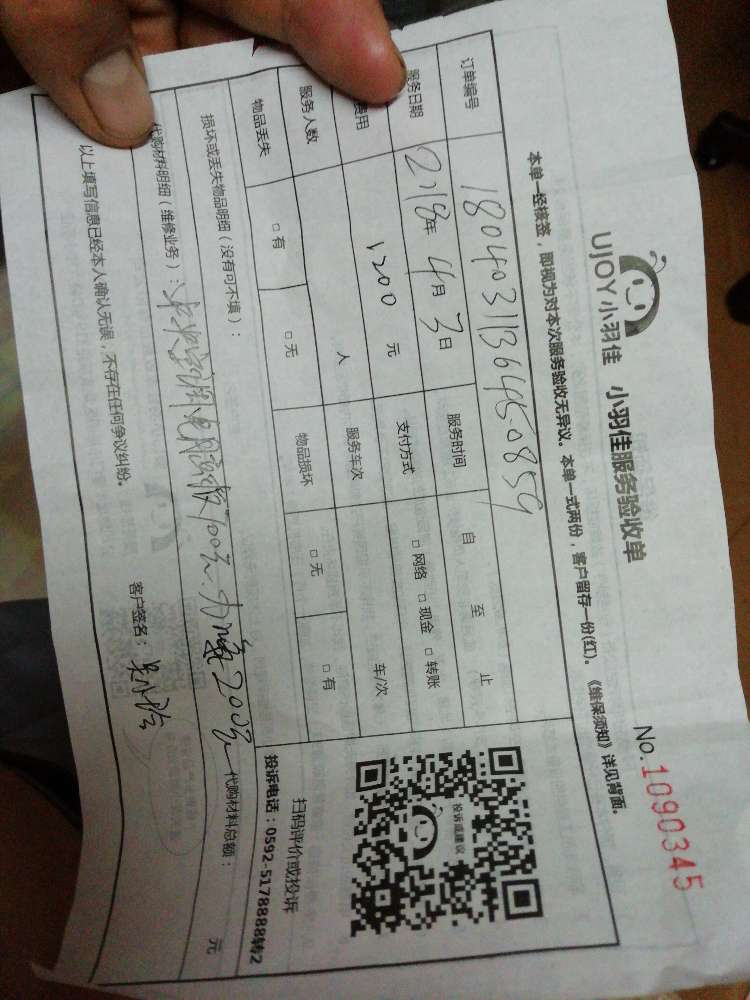 UJOY小羽佳 小羽佳服务验收单
No.1090345
本单一经核签，即视为对本次服务验收无异议。本单一式两份，客户留存一份(红)。《维保须知》详见背面。
订单编号 1804031136450859
服务日期 2018年 4月 3日 服务时间 自 至 止
费用 1200 元 支付方式 □网络 □现金 □转账
服务人数 人 服务车次 车/次
物品丢失 □有 □无 物品损坏 □无 □有
损坏或丢失物品明细（没有可不填）：
代购材料明细（维修业务）： 700元 200元 代购材料总额： 元
以上填写信息已经本人确认无误，不存在任何争议纠纷。
客户签名：
投诉或建议
扫码评价或投诉
投诉电话：0592-5178888转2